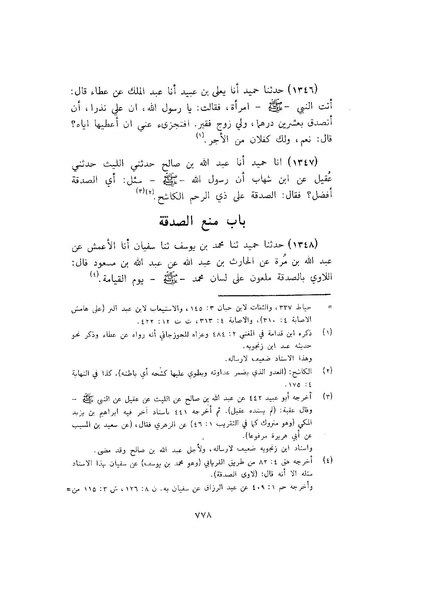 (١٣٤٦) حدثنا حميد أنا يعلى بن عبيد أنا عبد الملك عن عطاء قال:
أتت النبي -ﷺ- امرأة، فقالت: يا رسول الله، ان علي نذرا، أن
أتصدق بعشرين درهما، ولي زوج فقير. افتجزىء عني ان أعطيها اياه؟
قال: نعم، ولك كفلان من الأجر.(١)
(١٣٤٧) انا حميد أنا عبد الله بن صالح حدثني الليث حدثني
عُقيل عن ابن شهاب أن رسول الله -ﷺ- سئل: أي الصدقة
أفضل؟ فقال: الصدقة على ذي الرحم الكاشح.(٢)(٣)
باب منع الصدقة
(١٣٤٨) حدثنا حميد ثنا محمد بن يوسف ثنا سفيان أنا الأعمش عن
عبد الله بن مُرة عن الحارث بن عبد الله عن عبد الله بن مسعود قال:
اللاوي بالصدقة ملعون على لسان محمد -ﷺ- يوم القيامة.(٤)
= خياط ٣٣٧، والثقات لابن حبان ٣: ١٤٥، والاستيعاب لابن عبد البر (على هامش
الاصابة ٤: ٣١٠)، والاصابة ٤: ٣١٣، ت ت ١٢: ٤٢٢.
(١) ذكره ابن قدامة في المغني ٢: ٤٨٤ وعزاه للجوزجاني أنه رواه عن عطاء وذكر نحو
حديثه عند ابن زنجويه.
وهذا الاسناد ضعيف لارساله.
(٢) الكاشح: (العدو الذي يضمر عداوته ويطوي عليها كشحه أي باطنه)، كذا في النهاية
٤: ١٧٥.
(٣) أخرجه أبو عبيد ٤٤٢ عن عبد الله بن صالح عن الليث عن عقيل عن النبي -ﷺ-
وقال عقبة: (لم يسنده عقيل). ثم أخرجه ٤٤١ باسناد آخر فيه ابراهيم بن يزيد
المكي (وهو متروك كما في التقريب ١: ٤٦) عن الزهري فقال، (عن سعيد بن المسيب
عن أبي هريرة مرفوعا).
واسناد ابن زنجويه ضعيف لارساله، ولأجل عبد الله بن صالح وقد مضى.
(٤) أخرجه هق ٤: ٨٢ من طريق الفريابي (وهو محمد بن يوسف) عن سفيان بهذا الاسناد
مثله الا أنه قال: (لاوى الصدقة).
وأخرجه حم ١: ٤٠٩ عن عبد الرزاق عن سفيان به. ن ٨: ١٢٦، ش ٣: ١١٥ من=
٧٧٨